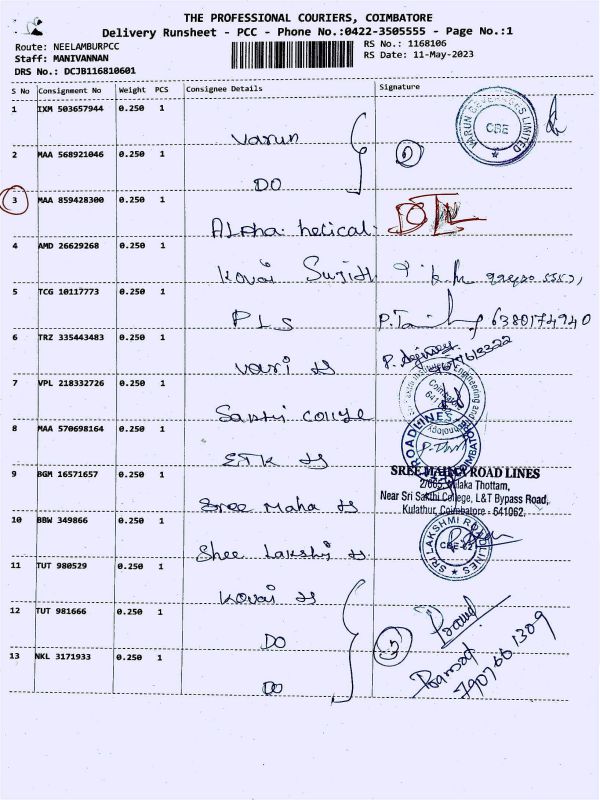 THE PROFESSIONAL COURIERS, COIMBATORE
Delivery Runsheet - PCC - Phone No.:0422-3505555 - Page No.:1
Route: NEELAMBURPCC
RS No.: 1168106
Staff: MANIVANNAN
RS Date: 11-May-2023
DRS No.: DCJB116810601
S No Consignment No Weight PCS Consignee Details Signature
1 IXM 503657944 0.250 1 Varun
VARUN BEVERAGES LIMITED
CBE
2 MAA 568921046 0.250 1 DO
2
3 MAA 859428300 0.250 1 Alpha helical
4 AMD 26629268 0.250 1 Kovai
5 TCG 10117773 0.250 1 PLS
6380174940
6 TRZ 335443483 0.250 1 Vari
7 VPL 218332726 0.250 1 Sakthi College
Engineering and Technology
Coimbatore
8 MAA 570698164 0.250 1 ETK
ROADLINES
9 BGM 16571657 0.250 1 Sree Maha
SREE MAHA ROAD LINES
Thottam,
Near Sri Sakthi College, L&T Bypass Road,
Kulathur, Coimbatore - 641062.
10 BBW 349866 0.250 1 Shree Lakshmi
SRI LAKSHMI ROADLINES
CBE-62
11 TUT 980529 0.250 1 Kovai
12 TUT 981666 0.250 1 DO
3
13 NKL 3171933 0.250 1 DO